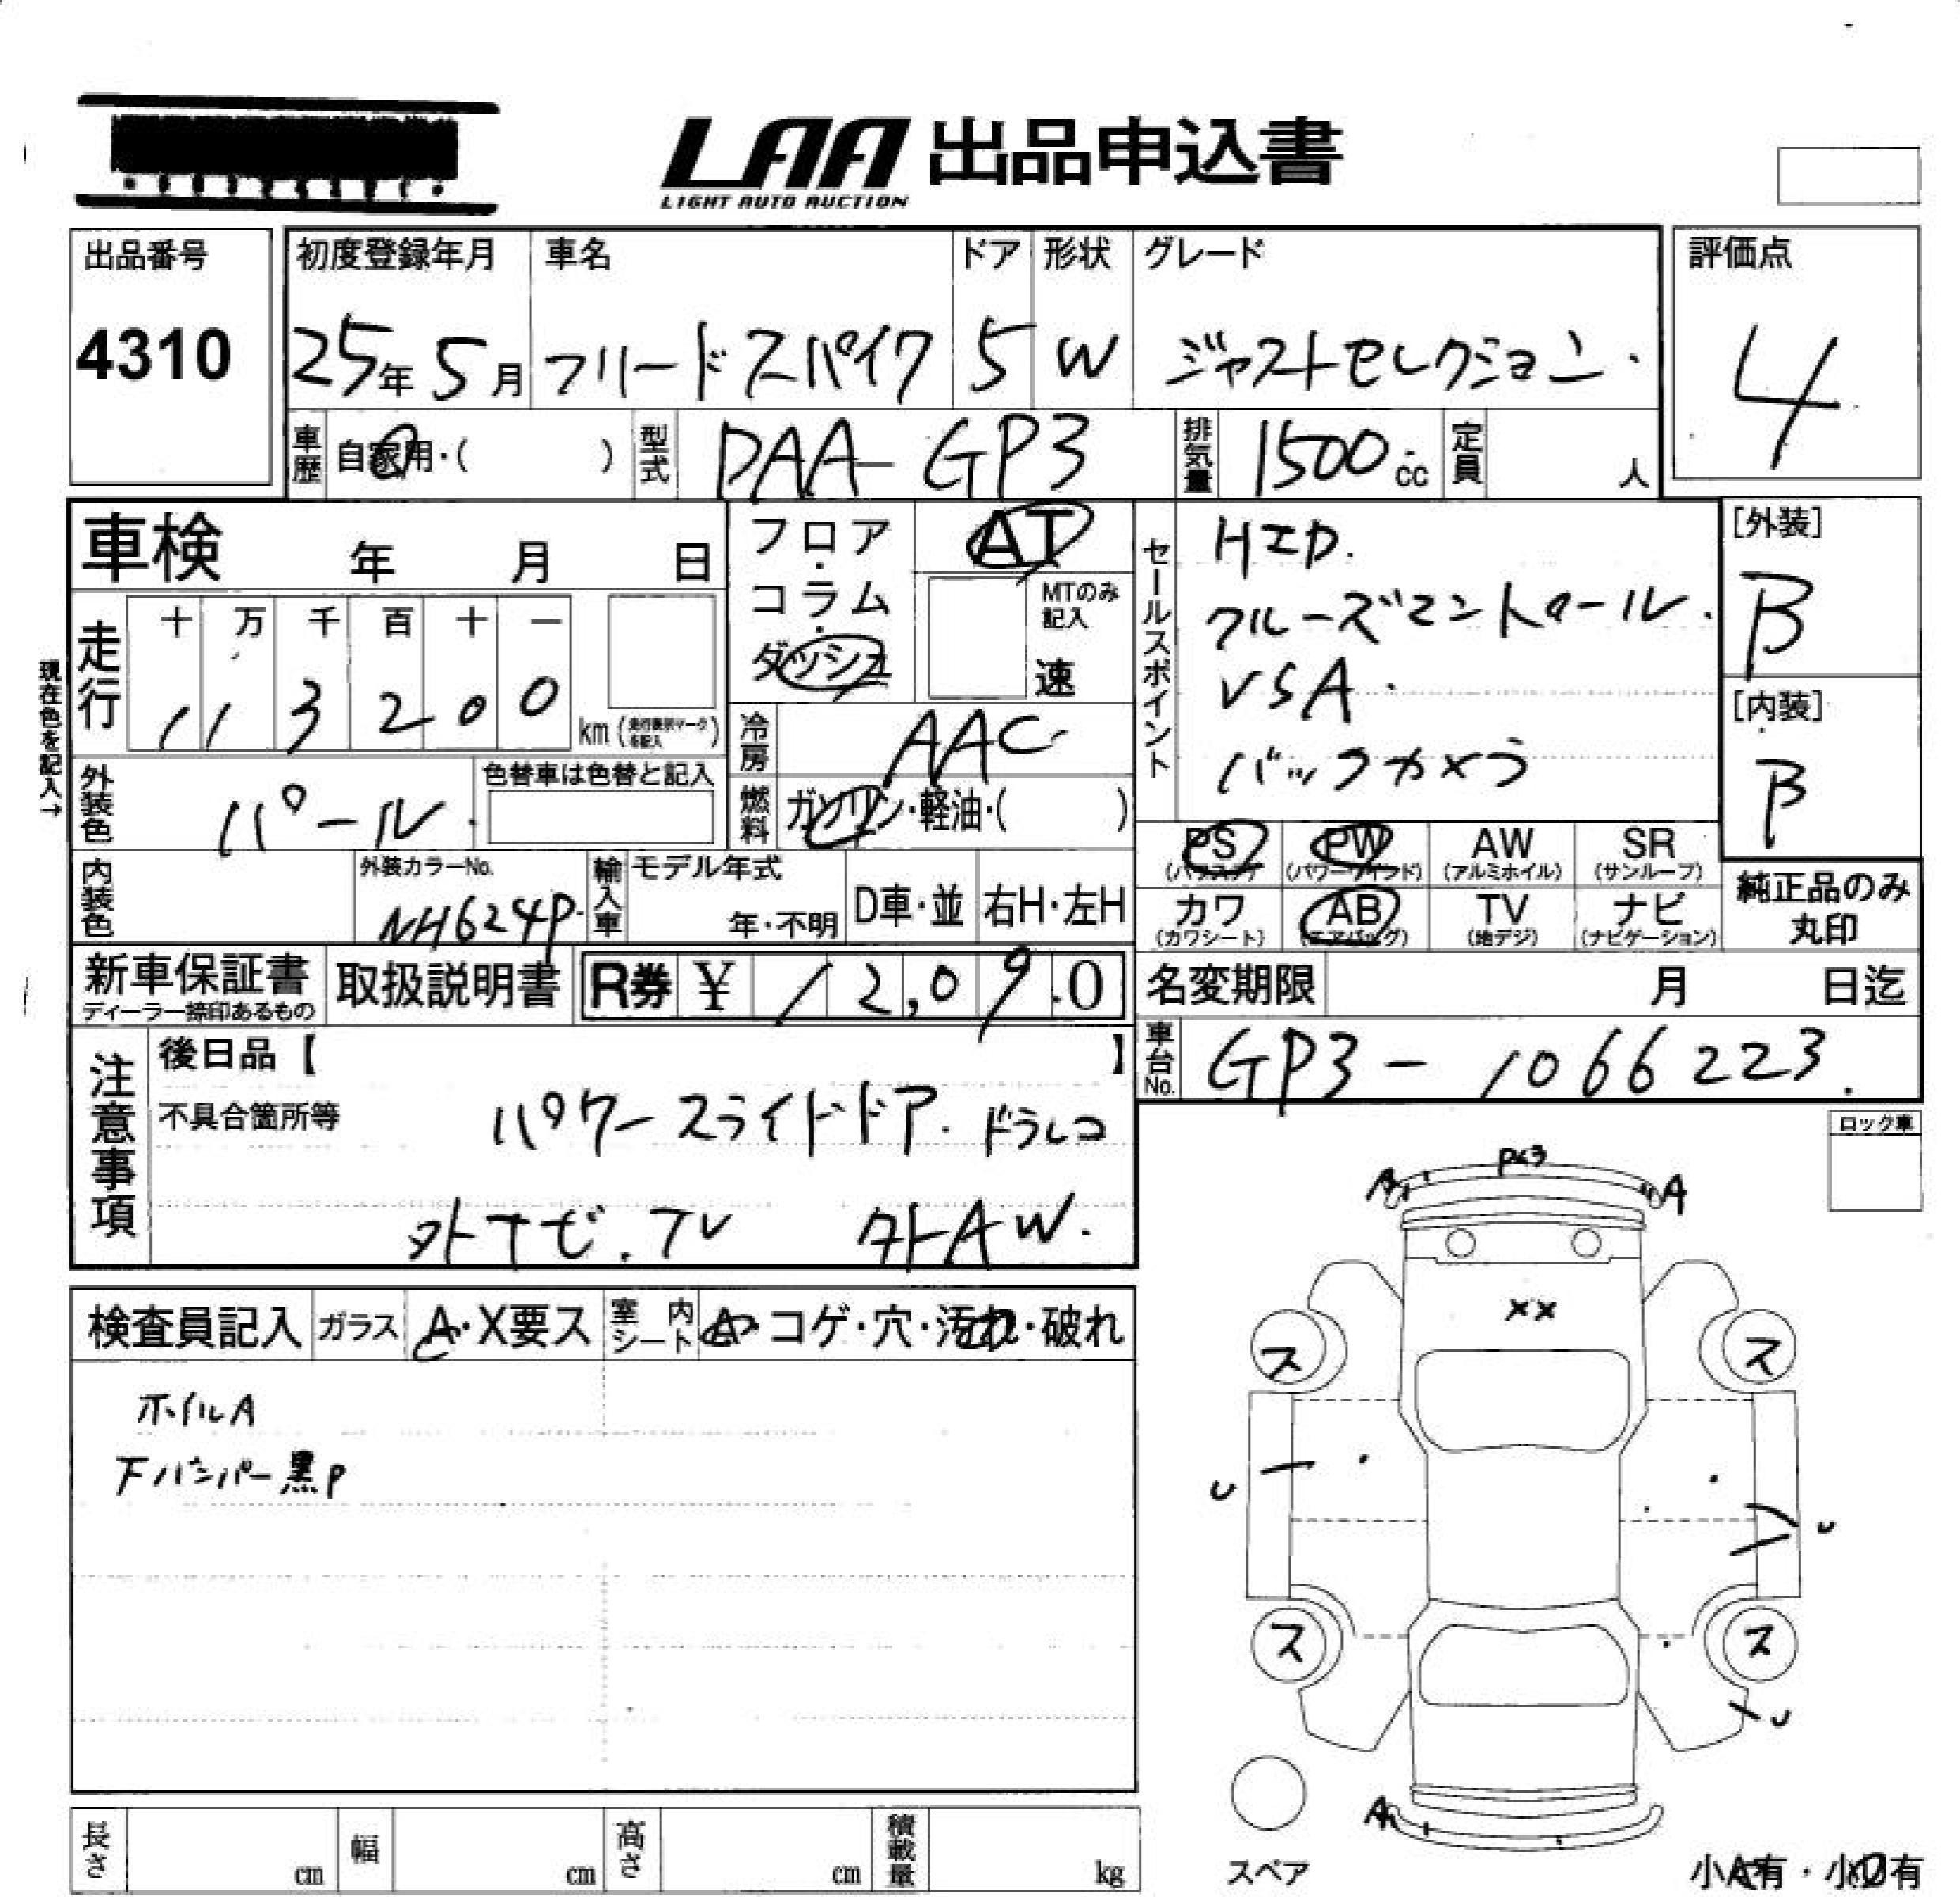 LAA 出品申込書
LIGHT AUTO AUCTION
出品番号
4310
初度登録年月 車名 ドア 形状 グレード
25年 5月 フリードスパイク 5 W ジャストセレクション.
評価点
4
車歴 自家用・( ) 型式 DAA-GP3 排気量 1500cc 定員 人
車検 年 月 日
フロア・コラム・ダッシュ
AT
MTのみ記入
速
現在色を記入→
走行 十 万 千 百 十 一
113200 km
冷房 AAC
燃料 ガソリン・軽油・( )
外装色 パール.
色替車は色替と記入
内装色
外装カラーNo.
NH624P.
輸入車 モデル年式
年・不明 D車・並 右H・左H
セールスポイント
HID.
クルーズコントロール.
VSA.
バックカメラ
[外装]
B
[内装]
B
PS PW AW SR
(パワステ) (パワーウインド) (アルミホイル) (サンルーフ)
カワ AB TV ナビ
(カワシート) (エアバッグ) (地デジ) (ナビゲーション)
純正品のみ
丸印
新車保証書
ディーラー捺印あるもの
取扱説明書 R券 ¥ 12,090
名変期限 月 日迄
車台No. GP3-1066223.
注意事項
後日品【 】
不具合箇所等
パワースライドドア. ドラレコ
外ナビ.TV 外AW.
ロック車
検査員記入 ガラス A・X要ス 室内シート A・コゲ・穴・汚れ・破れ
ホイルA
下バンパー黒P
A A
XX
ス ス
U U
ス ス
U
A
スペア
小A有・小U有
長さ cm 幅 cm 高さ cm 積載量 kg